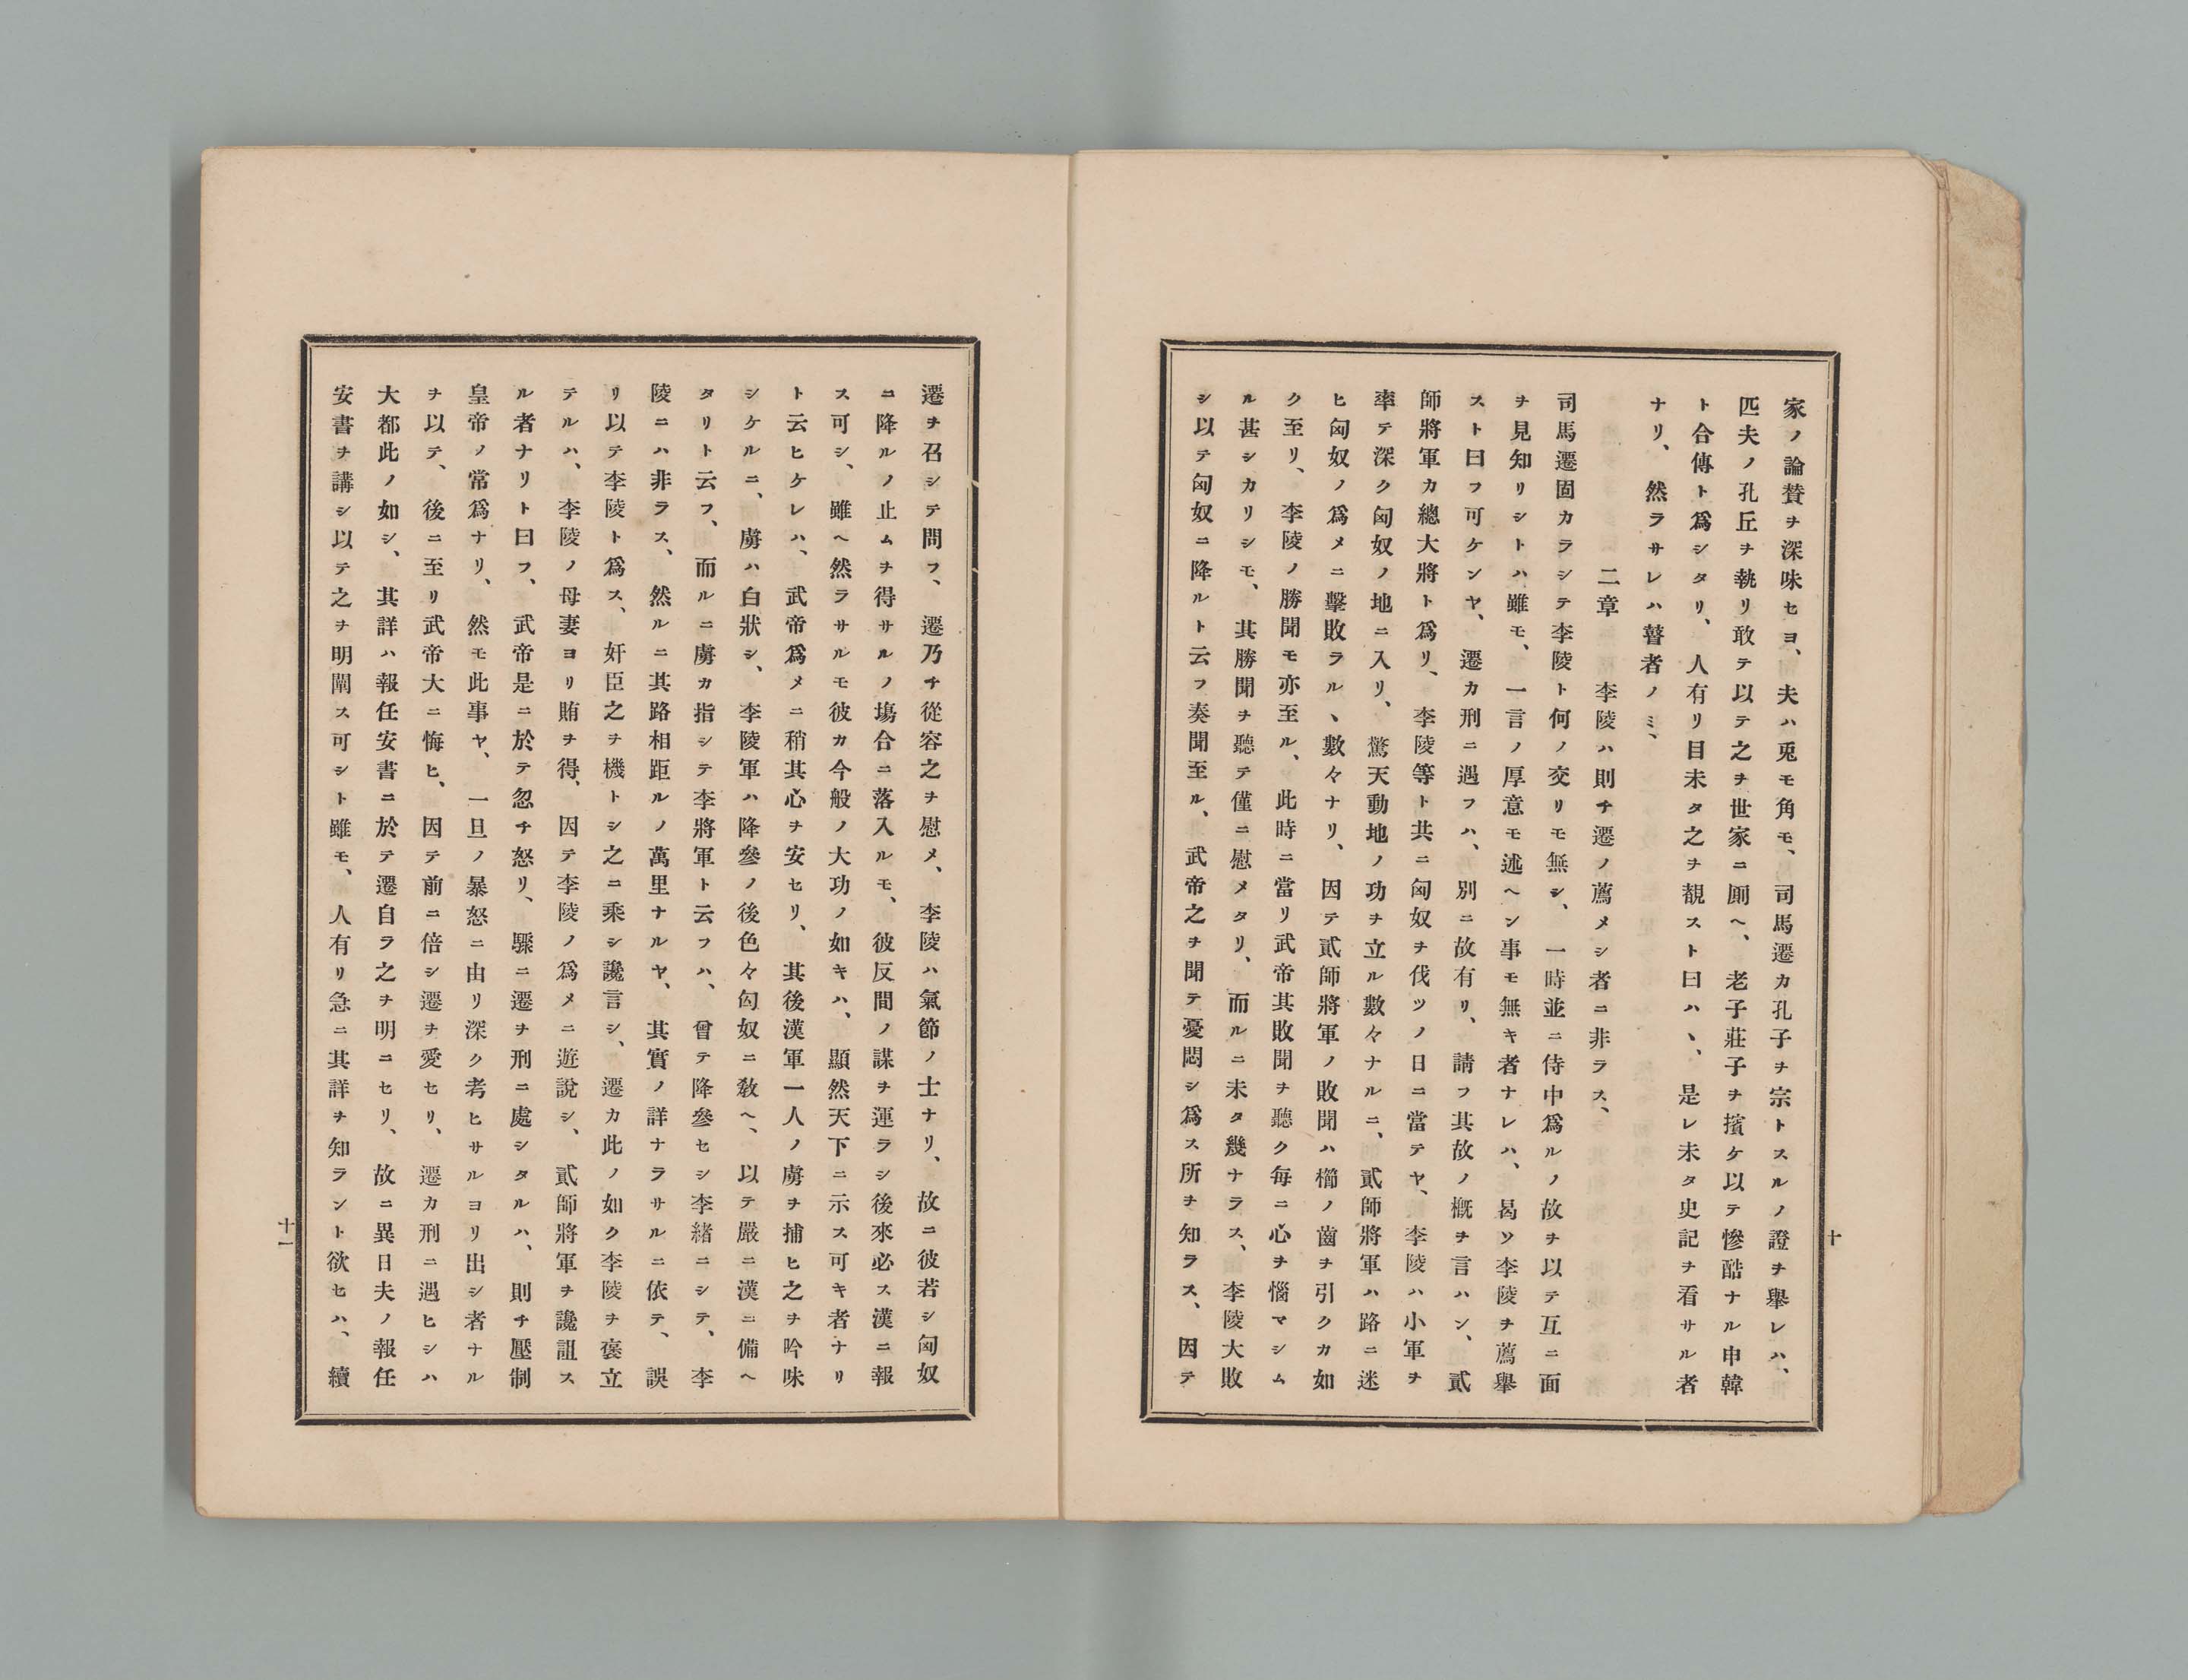 家ノ論賛ヲ深味セヨ、夫ハ兎モ角モ、司馬遷カ孔子ヲ宗トスルノ證ヲ擧レハ、
匹夫ノ孔丘ヲ執リ敢テ以テ之ヲ世家ニ厠ヘ、老子莊子ヲ擯ケ以テ慘酷ナル申韓
ト合傳ト爲シタリ、人有リ目未タ之ヲ覩スト曰ハヽ、是レ未タ史記ヲ看サル者
ナリ、然ラサレハ瞽者ノミ、
二章　李陵ハ則チ遷ノ薦メシ者ニ非ラス、
司馬遷固カラシテ李陵ト何ノ交リモ無シ、一時並ニ侍中爲ルノ故ヲ以テ互ニ面
ヲ見知リシトハ雖モ、一言ノ厚意モ述ヘン事モ無キ者ナレハ、曷ソ李陵ヲ薦擧
スト曰フ可ケンヤ、遷カ刑ニ遇フハ、別ニ故有リ、請フ其故ノ概ヲ言ハン、貳
師將軍カ總大將ト爲リ、李陵等ト共ニ匈奴ヲ伐ツノ日ニ當テヤ、李陵ハ小軍ヲ
率テ深ク匈奴ノ地ニ入リ、驚天動地ノ功ヲ立ル數々ナルニ、貳師將軍ハ路ニ迷
ヒ匈奴ノ爲メニ擊敗ラルヽ數々ナリ、因テ貳師將軍ノ敗聞ハ櫛ノ齒ヲ引クカ如
ク至リ、李陵ノ勝聞モ亦至ル、此時ニ當リ武帝其敗聞ヲ聽ク每ニ心ヲ惱マシム
ル甚シカリシモ、其勝聞ヲ聽テ僅ニ慰メタリ、而ルニ未タ幾ナラス、李陵大敗
シ以テ匈奴ニ降ルト云フ奏聞至ル、武帝之ヲ聞テ憂悶シ爲ス所ヲ知ラス、因テ
十
遷ヲ召シテ問フ、遷乃チ從容之ヲ慰メ、李陵ハ氣節ノ士ナリ、故ニ彼若シ匈奴
ニ降ルノ止ムヲ得サルノ塲合ニ落入ルモ、彼反間ノ謀ヲ運ラシ後來必ス漢ニ報
ス可シ、雖ヘ然ラサルモ彼カ今般ノ大功ノ如キハ、顯然天下ニ示ス可キ者ナリ
ト云ヒケレハ、武帝爲メニ稍其心ヲ安セリ、其後漢軍一人ノ虜ヲ捕ヒ之ヲ吟味
シケルニ、虜ハ白狀シ、李陵軍ハ降參ノ後色々匈奴ニ敎ヘ、以テ嚴ニ漢ニ備ヘ
タリト云フ、而ルニ虜カ指シテ李將軍ト云フハ、曾テ降參セシ李緒ニシテ、李
陵ニハ非ラス、然ルニ其路相距ルノ萬里ナルヤ、其實ノ詳ナラサルニ依テ、誤
リ以テ李陵ト爲ス、奸臣之ヲ機トシ之ニ乘シ讒言シ、遷カ此ノ如ク李陵ヲ褒立
テルハ、李陵ノ母妻ヨリ賄ヲ得、因テ李陵ノ爲メニ遊說シ、貳師將軍ヲ讒詛ス
ル者ナリト曰フ、武帝是ニ於テ忽チ怒リ、驟ニ遷ヲ刑ニ處シタルハ、則チ壓制
皇帝ノ常爲ナリ、然モ此事ヤ、一旦ノ暴怒ニ由リ深ク考ヒサルヨリ出シ者ナル
ヲ以テ、後ニ至リ武帝大ニ悔ヒ、因テ前ニ倍シ遷ヲ愛セリ、遷カ刑ニ遇ヒシハ
大都此ノ如シ、其詳ハ報任安書ニ於テ遷自ラ之ヲ明ニセリ、故ニ異日夫ノ報任
安書ヲ講シ以テ之ヲ明闡ス可シト雖モ、人有リ急ニ其詳ヲ知ラント欲セハ、續
十一